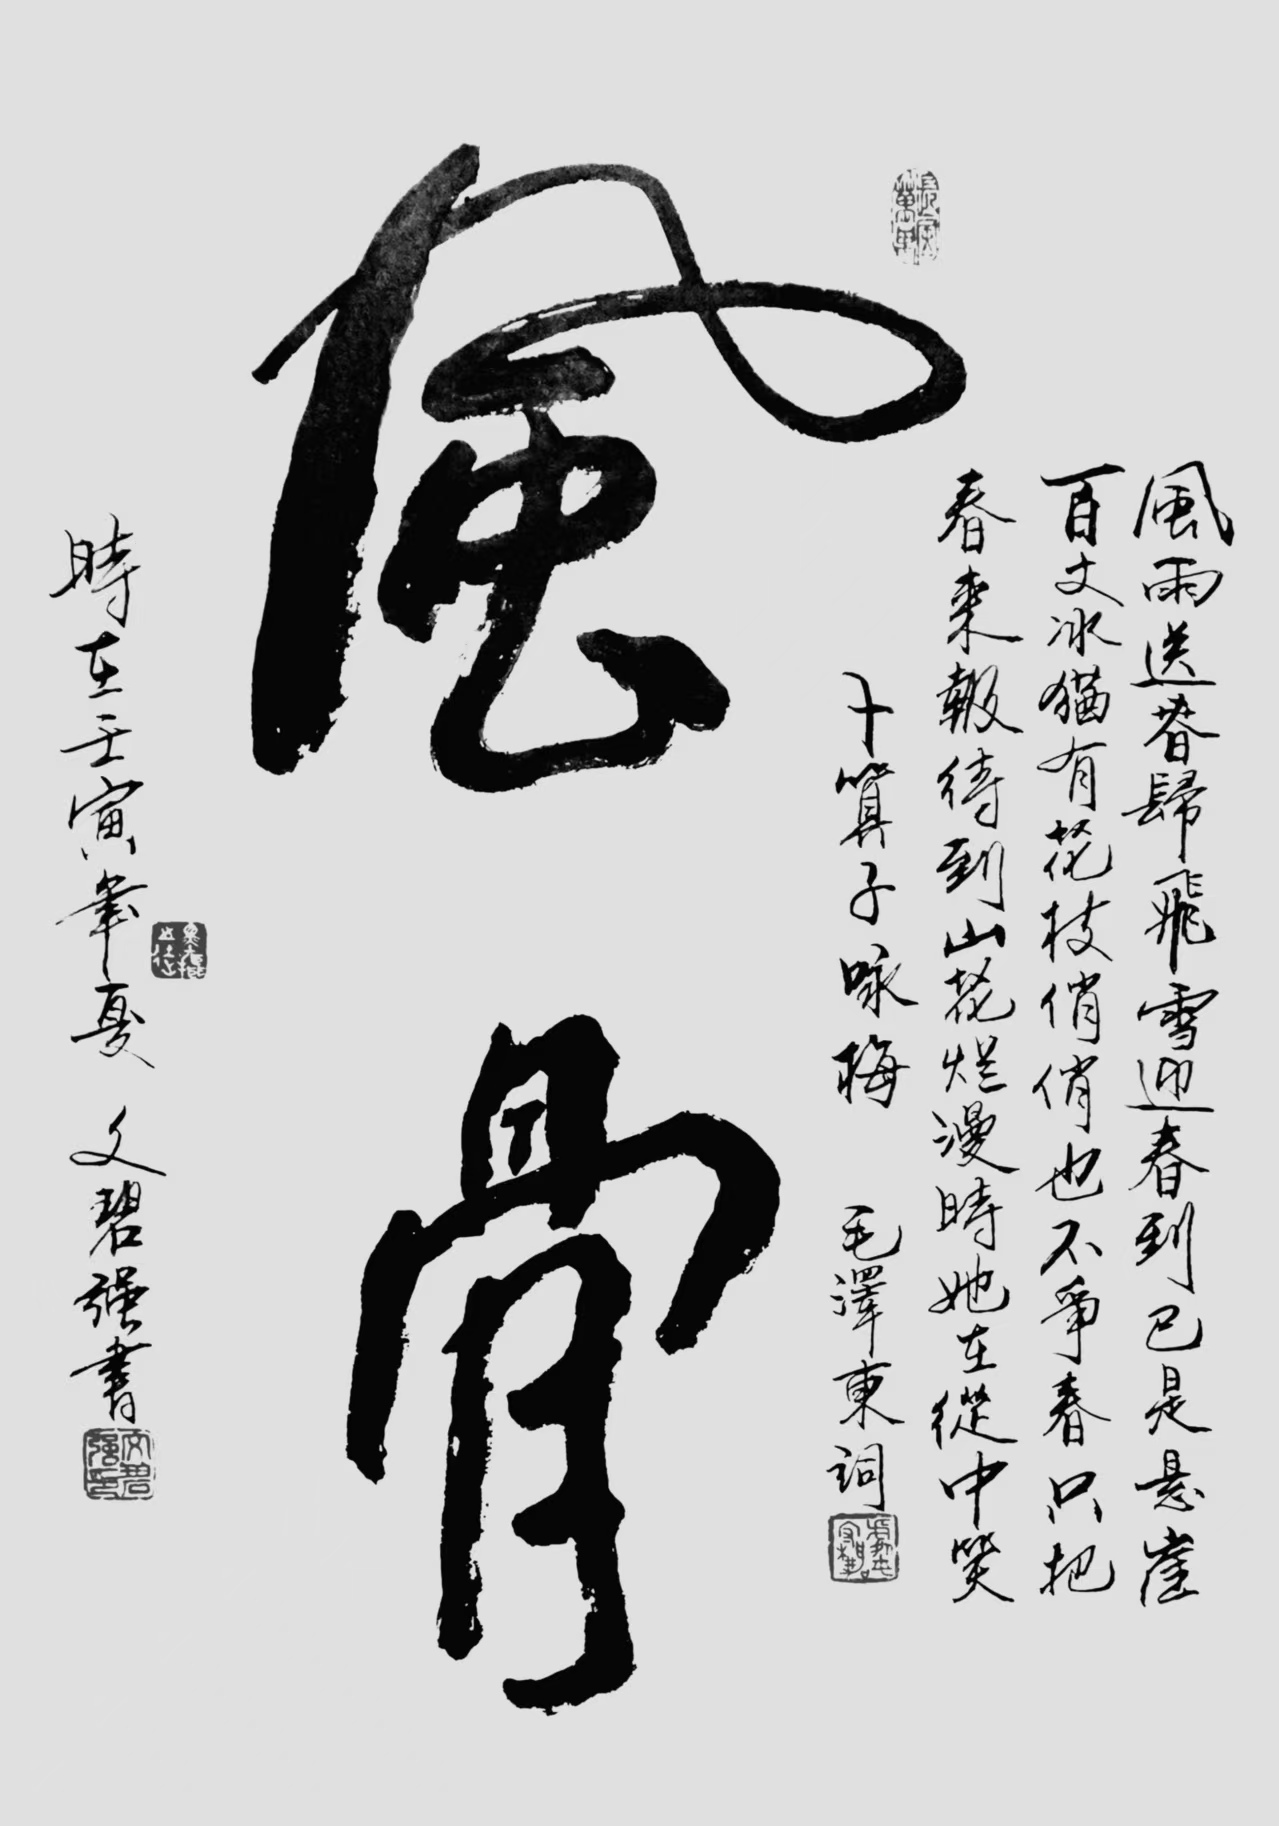 風雨送春歸飛雪迎春到已是悬崖
百丈冰猶有花枝俏俏也不爭春只把
春來報待到山花烂漫時她在從中笑
卜算子咏梅 毛澤東詞
風骨
時在壬寅年夏 文碧强書
文碧强印